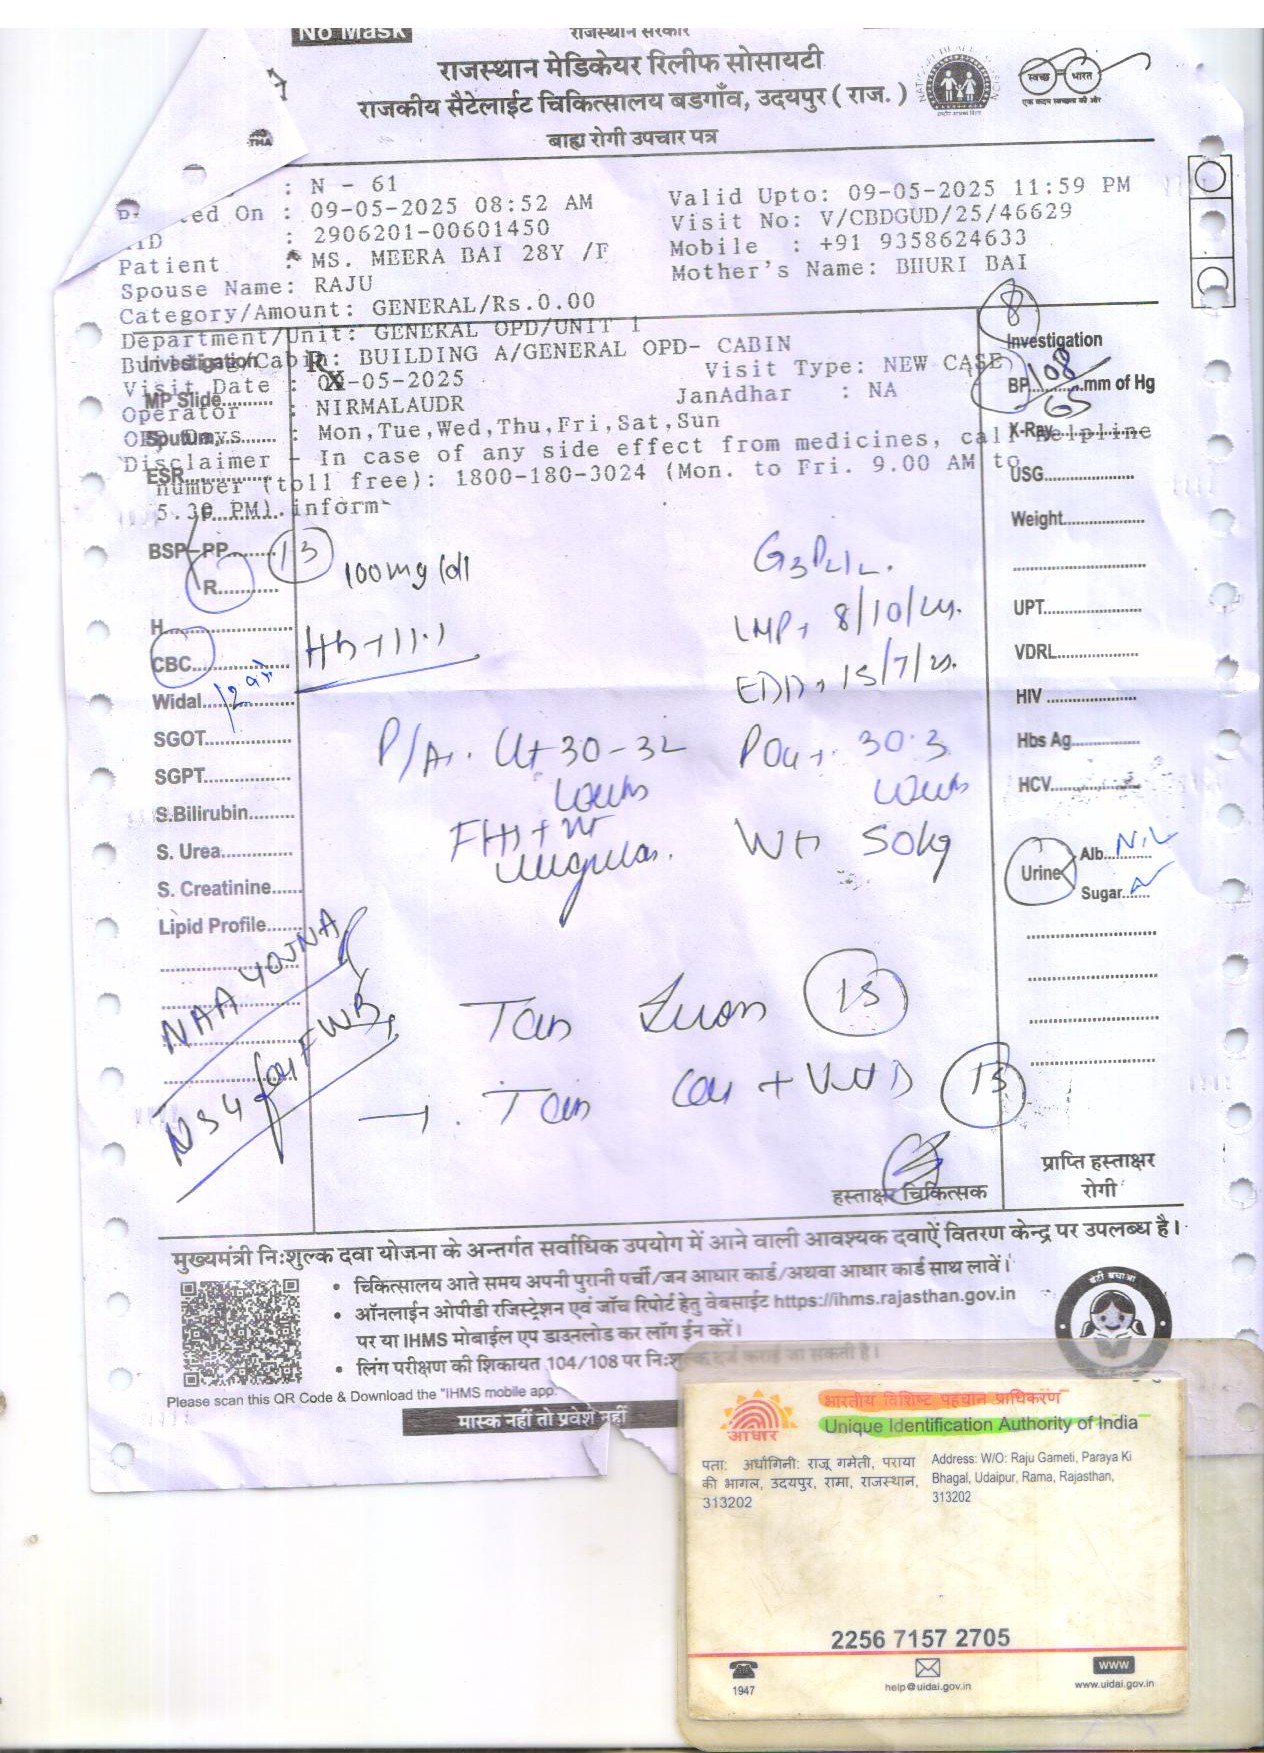 No Mask
राजस्थान सरकार
राजस्थान मेडिकेयर रिलीफ सोसायटी
राजकीय सैटेलाईट चिकित्सालय बडगाँव, उदयपुर ( राज. )
बाह्य रोगी उपचार पत्र
स्वच्छ भारत
एक कदम स्वच्छता की ओर
: N - 61
ed On : 09-05-2025 08:52 AM
Valid Upto: 09-05-2025 11:59 PM
: 2906201-00601450
Visit No: V/CBDGUD/25/46629
Patient : MS. MEERA BAI 28Y /F
Mobile : +91 9358624633
Spouse Name: RAJU
Mother's Name: BHURI BAI
Category/Amount: GENERAL/Rs.0.00
8
Department/Unit: GENERAL OPD/UNIT 1
Building/Cabin: BUILDING A/GENERAL OPD- CABIN
Visit Date : 09-05-2025
Visit Type: NEW CASE
Operator : NIRMALAUDR
JanAdhar : NA
OPD Days : Mon,Tue,Wed,Thu,Fri,Sat,Sun
Disclaimer - In case of any side effect from medicines, call helpline
number (toll free): 1800-180-3024 (Mon. to Fri. 9.00 AM to
5.30 PM). inform
Investigation
Rx
MP Slide..........
Sputum..........
ESR..........
F..........
BSP PP.......... 13
R.......... 100 mg/dl
H..........
CBC.......... Hb → 11.1
Widal..........
SGOT..........
SGPT..........
S.Bilirubin.........
S. Urea..........
S. Creatinine......
Lipid Profile.......
NAA YOJNA
G3P2L2.
LMP → 8/10/24.
EDD → 15/7/25.
P/A → Ut 30-32 weeks
POG → 30.3 weeks
FHS +
Wt 50kg
Tab 15
→ Tab 15
Investigation
BP 108/65 mm of Hg
X-Ray..........
USG..........
Weight..........
UPT..........
VDRL..........
HIV ..........
Hbs Ag..........
HCV..........
Urine Alb. Nil
Sugar.......
हस्ताक्षर चिकित्सक
प्राप्ति हस्ताक्षर
रोगी
मुख्यमंत्री निःशुल्क दवा योजना के अन्तर्गत सर्वाधिक उपयोग में आने वाली आवश्यक दवाऐं वितरण केन्द्र पर उपलब्ध है।
• चिकित्सालय आते समय अपनी पुरानी पर्ची/जन आधार कार्ड/अथवा आधार कार्ड साथ लावें।
• ऑनलाईन ओपीडी रजिस्ट्रेशन एवं जॉच रिपोर्ट हेतु वेबसाईट https://ihms.rajasthan.gov.in
पर या IHMS मोबाईल एप डाउनलोड कर लॉग ईन करें।
• लिंग परीक्षण की शिकायत 104/108 पर निःशुल्क दर्ज कराई जा सकती है।
Please scan this QR Code & Download the "IHMS mobile app.
मास्क नहीं तो प्रवेश नहीं
बेटी बचाओ
आधार
भारतीय विशिष्ट पहचान प्राधिकरण
Unique Identification Authority of India
पता: अर्धांगिनी: राजू गमेती, पराया
की भागल, उदयपुर, रामा, राजस्थान,
313202
Address: W/O: Raju Gameti, Paraya Ki
Bhagal, Udaipur, Rama, Rajasthan,
313202
2256 7157 2705
1947
help@uidai.gov.in
www
www.uidai.gov.in